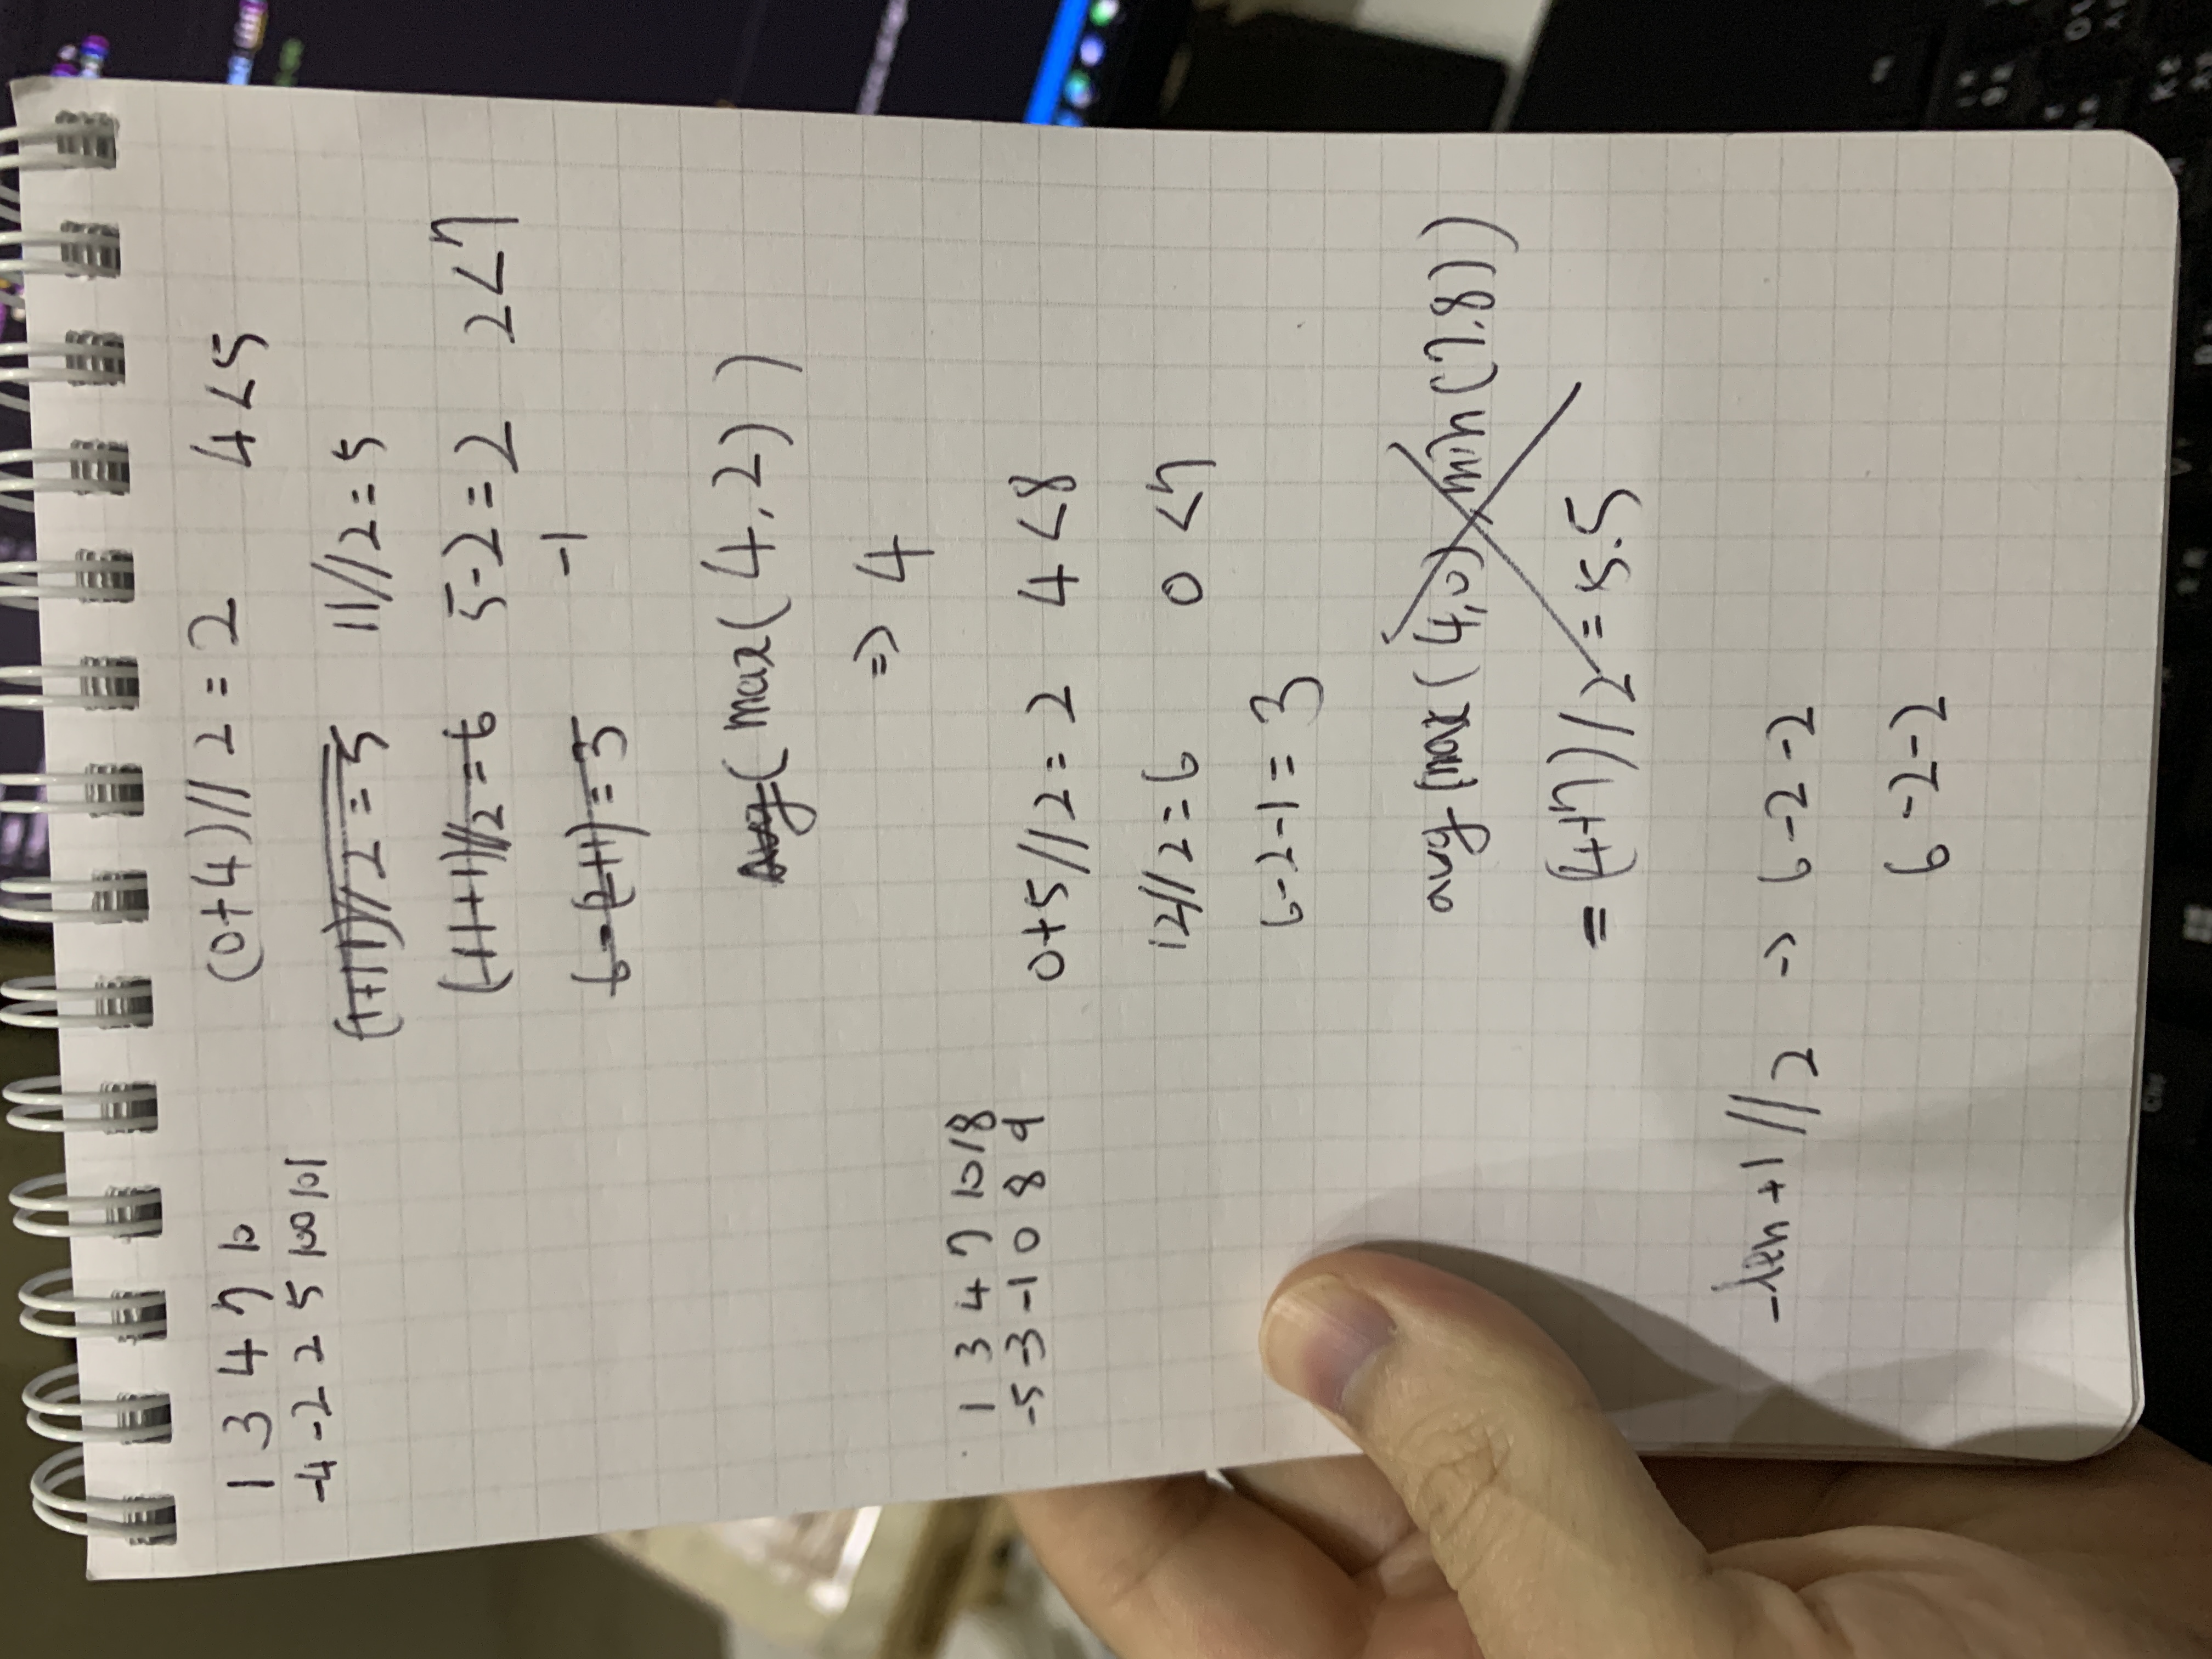 1 3 4 7 10 (0+4)//2=2 4<5
-4 -2 2 5 100 101
(1+11)//2=5 11//2=5
(11+1)//2=6 5-2=2 2<7
6-(2+1)=3 -1
avg(max(4,2))
=> 4
1 3 4 7 10 18
-5 -3 -1 0 8 9 0+5//2=2 4<8
12//2=6 0<7
6-2-1=3
avg(max(4,0) min(7,8))
=(4+7)/2=5.5
-len+1//2 -> 6-2-2
6-2-2